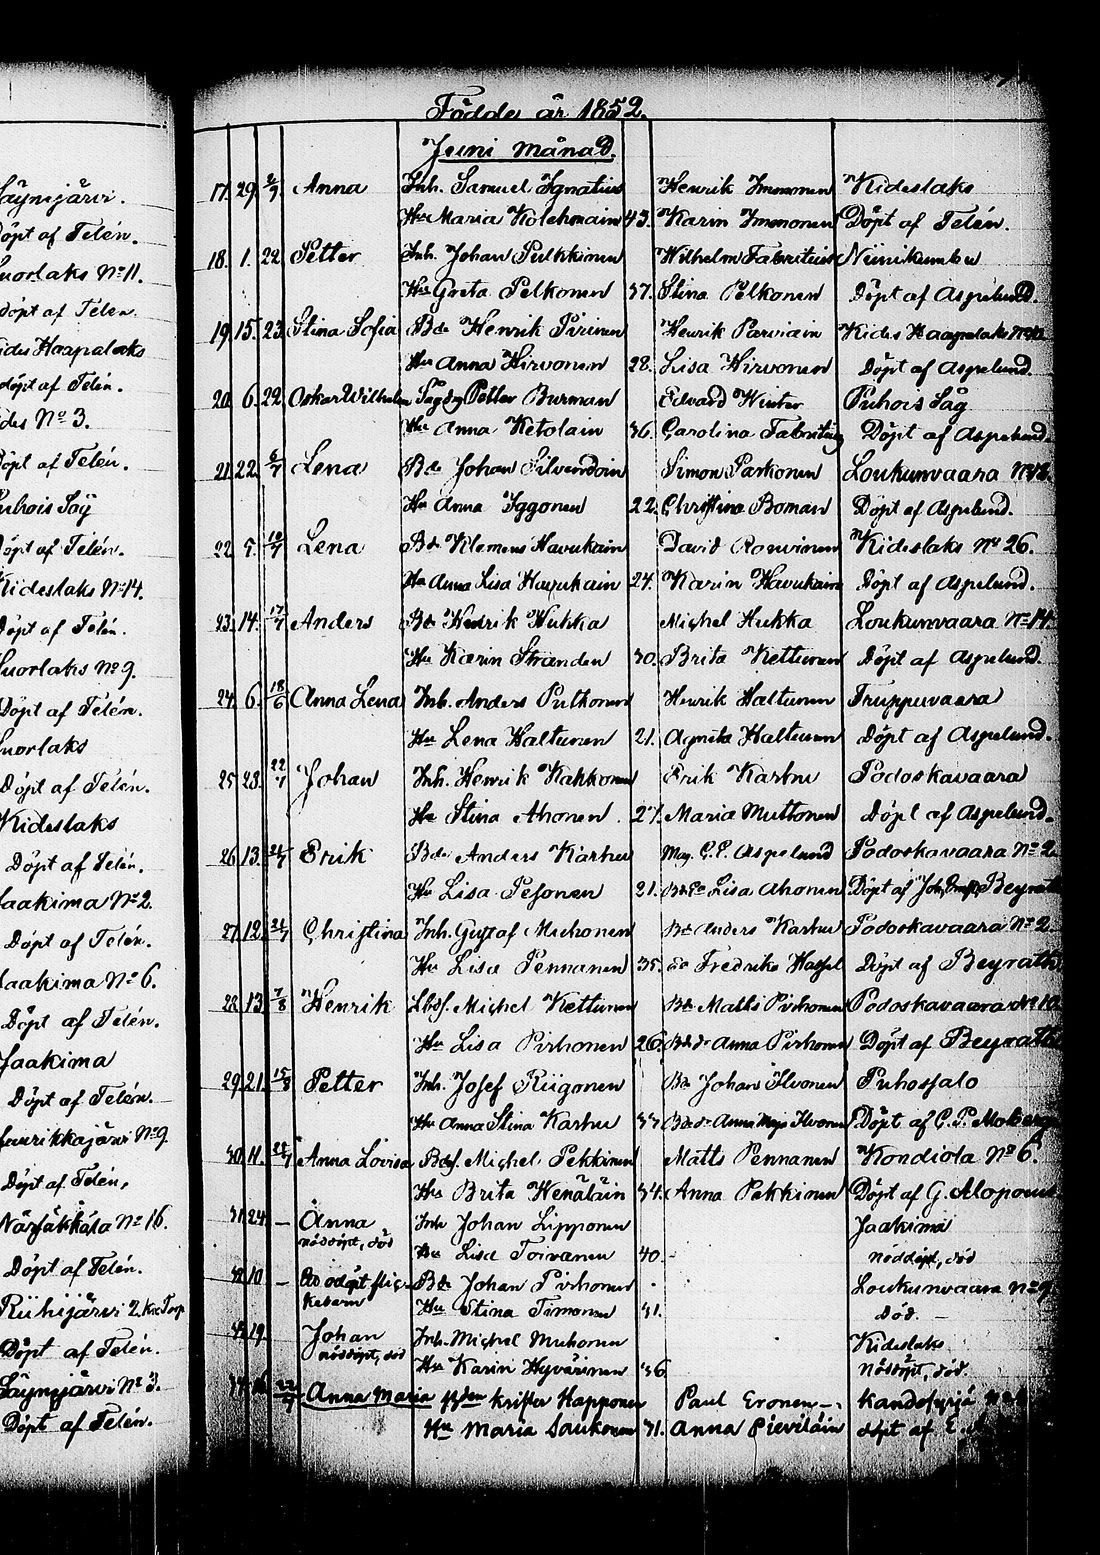 äynejärvi.
Döpt af Telén.
uorlaks No 11.
döpt af Telen.
ides Haapalaks
döpt af Telén.
des No 3.
Döpt af Telén.
uhois Såg
Döpt af Telén.
Kideslaks No 14.
Döpt af Telén.
uorlaks No 9.
Döpt af Telén.
uorlaks
Döpt af Telén.
Kideslaks
Döpt af Telén.
aakima No 2.
Döpt af Telén.
aakima No 6.
Döpt af Telén.
Jaakima
Döpt af Telén.
No 9
Döpt af Telén,
No 16.
Döpt af Telén.
Riihijärvi 2. Kr. Torp
Döpt af Telén.
No 3.
Döpt af Telén.
Födde år 1852.
Juni Månad.
17. 29. 2/7 Anna Inh. Samuel Ignatius Henrik Immonen Kideslaks
Hu Maria Kolehmain 43. Karin Immonen Döpt af Telén.
18. 1. 22. Petter Inh. Johan Pulkkinen Wilhelm Fabritius Niinikumbu
Hu Greta Pelkonen 37. Stina Pelkonen Döpt af Aspelund.
19. 15. 23. Stina Sofia Bde Henrik Pirinen Henrik Parviain Kides Haapalaks
Hu Anna Hirvonen 28. Lisa Hirvonen Döpt af Aspelund.
20. 6. 22. Oskar Wilhelm Petter Burman Edvard Winter Puhois Såg
Hu Anna Ketolain 36. Carolina Fabritius Döpt af Aspelund.
21. 22. 2/7 Lena Bde Johan Silvendoin Simon Parkonen Loukunvaara
Hu Anna Iggonen 22. Christina Boman Döpt af Aspelund.
22. 5. 10/7 Lena Bde Klemens Havukain David Rouvinen Kideslaks No 26.
Hu Anna Lisa Havukain 24. Karin Havukain Döpt af Aspelund.
23. 14. 17/7 Anders Bde Henrik Hukka Michel Hukka Loukunvaara No 14.
Hu Karin Stranden 30. Brita Kettunen Döpt af Aspelund.
24. 6. 18/6 Anna Lena Inh. Anders Putkonen Henrik Haltunen Truppuvaara
Hu Lena Haltunen 21. Agnita Haltunen Döpt af Aspelund.
25 28. 22/7 Johan Inh. Henrik Kakkonen Erik Karhu Podoskavaara
Hu Stina Ahonen. 27. Maria Muttonen Döpt af Aspelund.
26. 13. 24/7 Erik Bde Anders Karhu Mag. C. P. Aspelund Podoskavaara No 2.
Hu Lisa Pesonen 21. Lisa Ahonen Döpt af Beyrath
27. 12. 24/7 Christina Inh. Gustaf Muhonen Bde Anders Karhu Podoskavaara No 2.
Hu Lisa Pennanen 35. do Fredrika Hassel Döpt af Beyrath
28. 13. 7/8 Henrik Michel Kettunen Bde Matts Pirhonen Podoskavaara No 10.
Hu Lisa Pirhonen 26. Anna Pirhonen Döpt af Beyrath
29. 21. 15/8 Petter Inh. Josef Riigonen Bde Johan Ilvonen Puhossalo
Hu Anna Stina Karhu 37 Anna Maja Ilvonen Döpt af C. P. Moberg
30. 11. 25/7 Anna Lovisa Bdsf. Michel Pekkinen Matts Pennanen Kondiola No 6.
Hu Brita Henäläin 34. Anna Pekkinen Döpt af G. Alopæus
31. 24. — Anna Inh Johan Lipponen Jaakima
nöddöpt, död Hu Lisa Toivanen 40. nöddöpt, död
32. 10. — Bde Johan Pirhonen Loukunvaara No 9.
Hu Stina Timonen 31. död. —
33. 19. Johan Inh. Michel Muhonen Kideslaks
nöddöpt, död Hu Karin Hyvärinen 36 nöddöpt, död.
34. Anna Maria Krister Happonen Paul Eronen
Hu Maria Saukonen 31. Anna Pieviläin döpt af